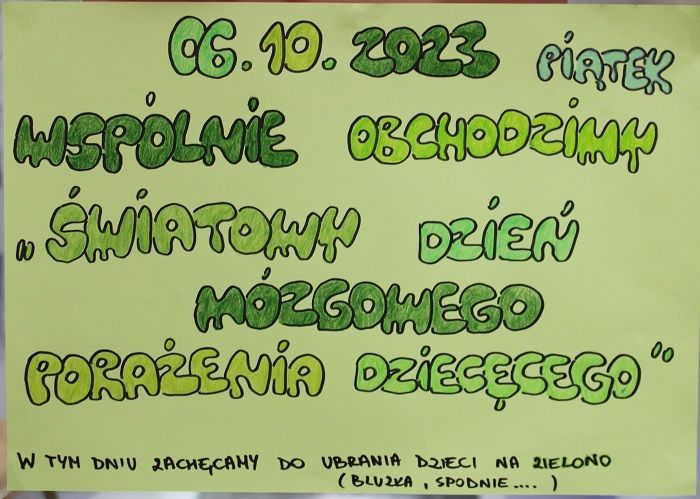 06.10.2023 PIĄTEK
WSPÓLNIE OBCHODZIMY
„ŚWIATOWY DZIEŃ
MÓZGOWEGO
PORAŻENIA DZIECĘCEGO”
W TYM DNIU ZACHĘCAMY DO UBRANIA DZIECI NA ZIELONO
(BLUZKA, SPODNIE....)